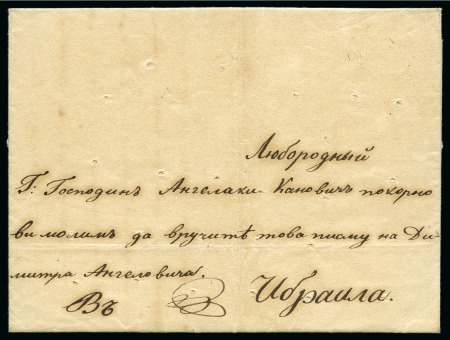 Любородный
Г: Господинъ Ангелаки Кановичъ покорно
ви молимъ да вручитѣ това писму на Ди
митра Ангеловича.
Въ Ибраила.